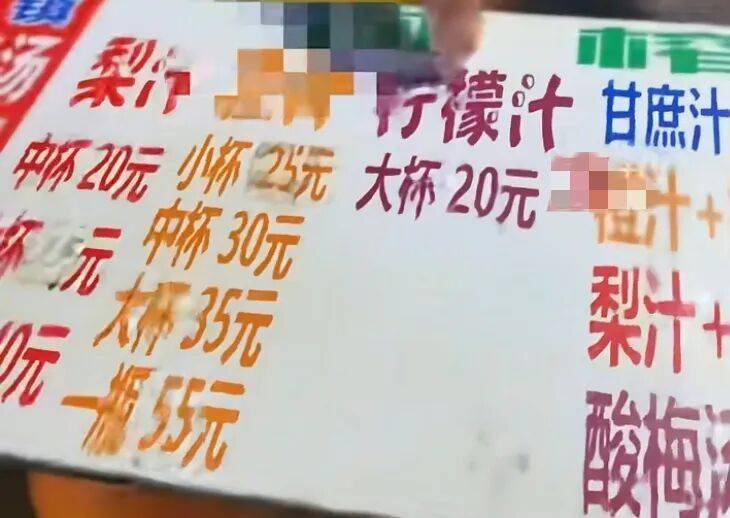 镇
汤
梨汁
中杯 20元
杯 元
0元
小杯 25元
中杯 30元
大杯 35元
一瓶 55元
柠檬汁
大杯 20元
甘庶汁
橙汁+
梨汁+
酸梅汤